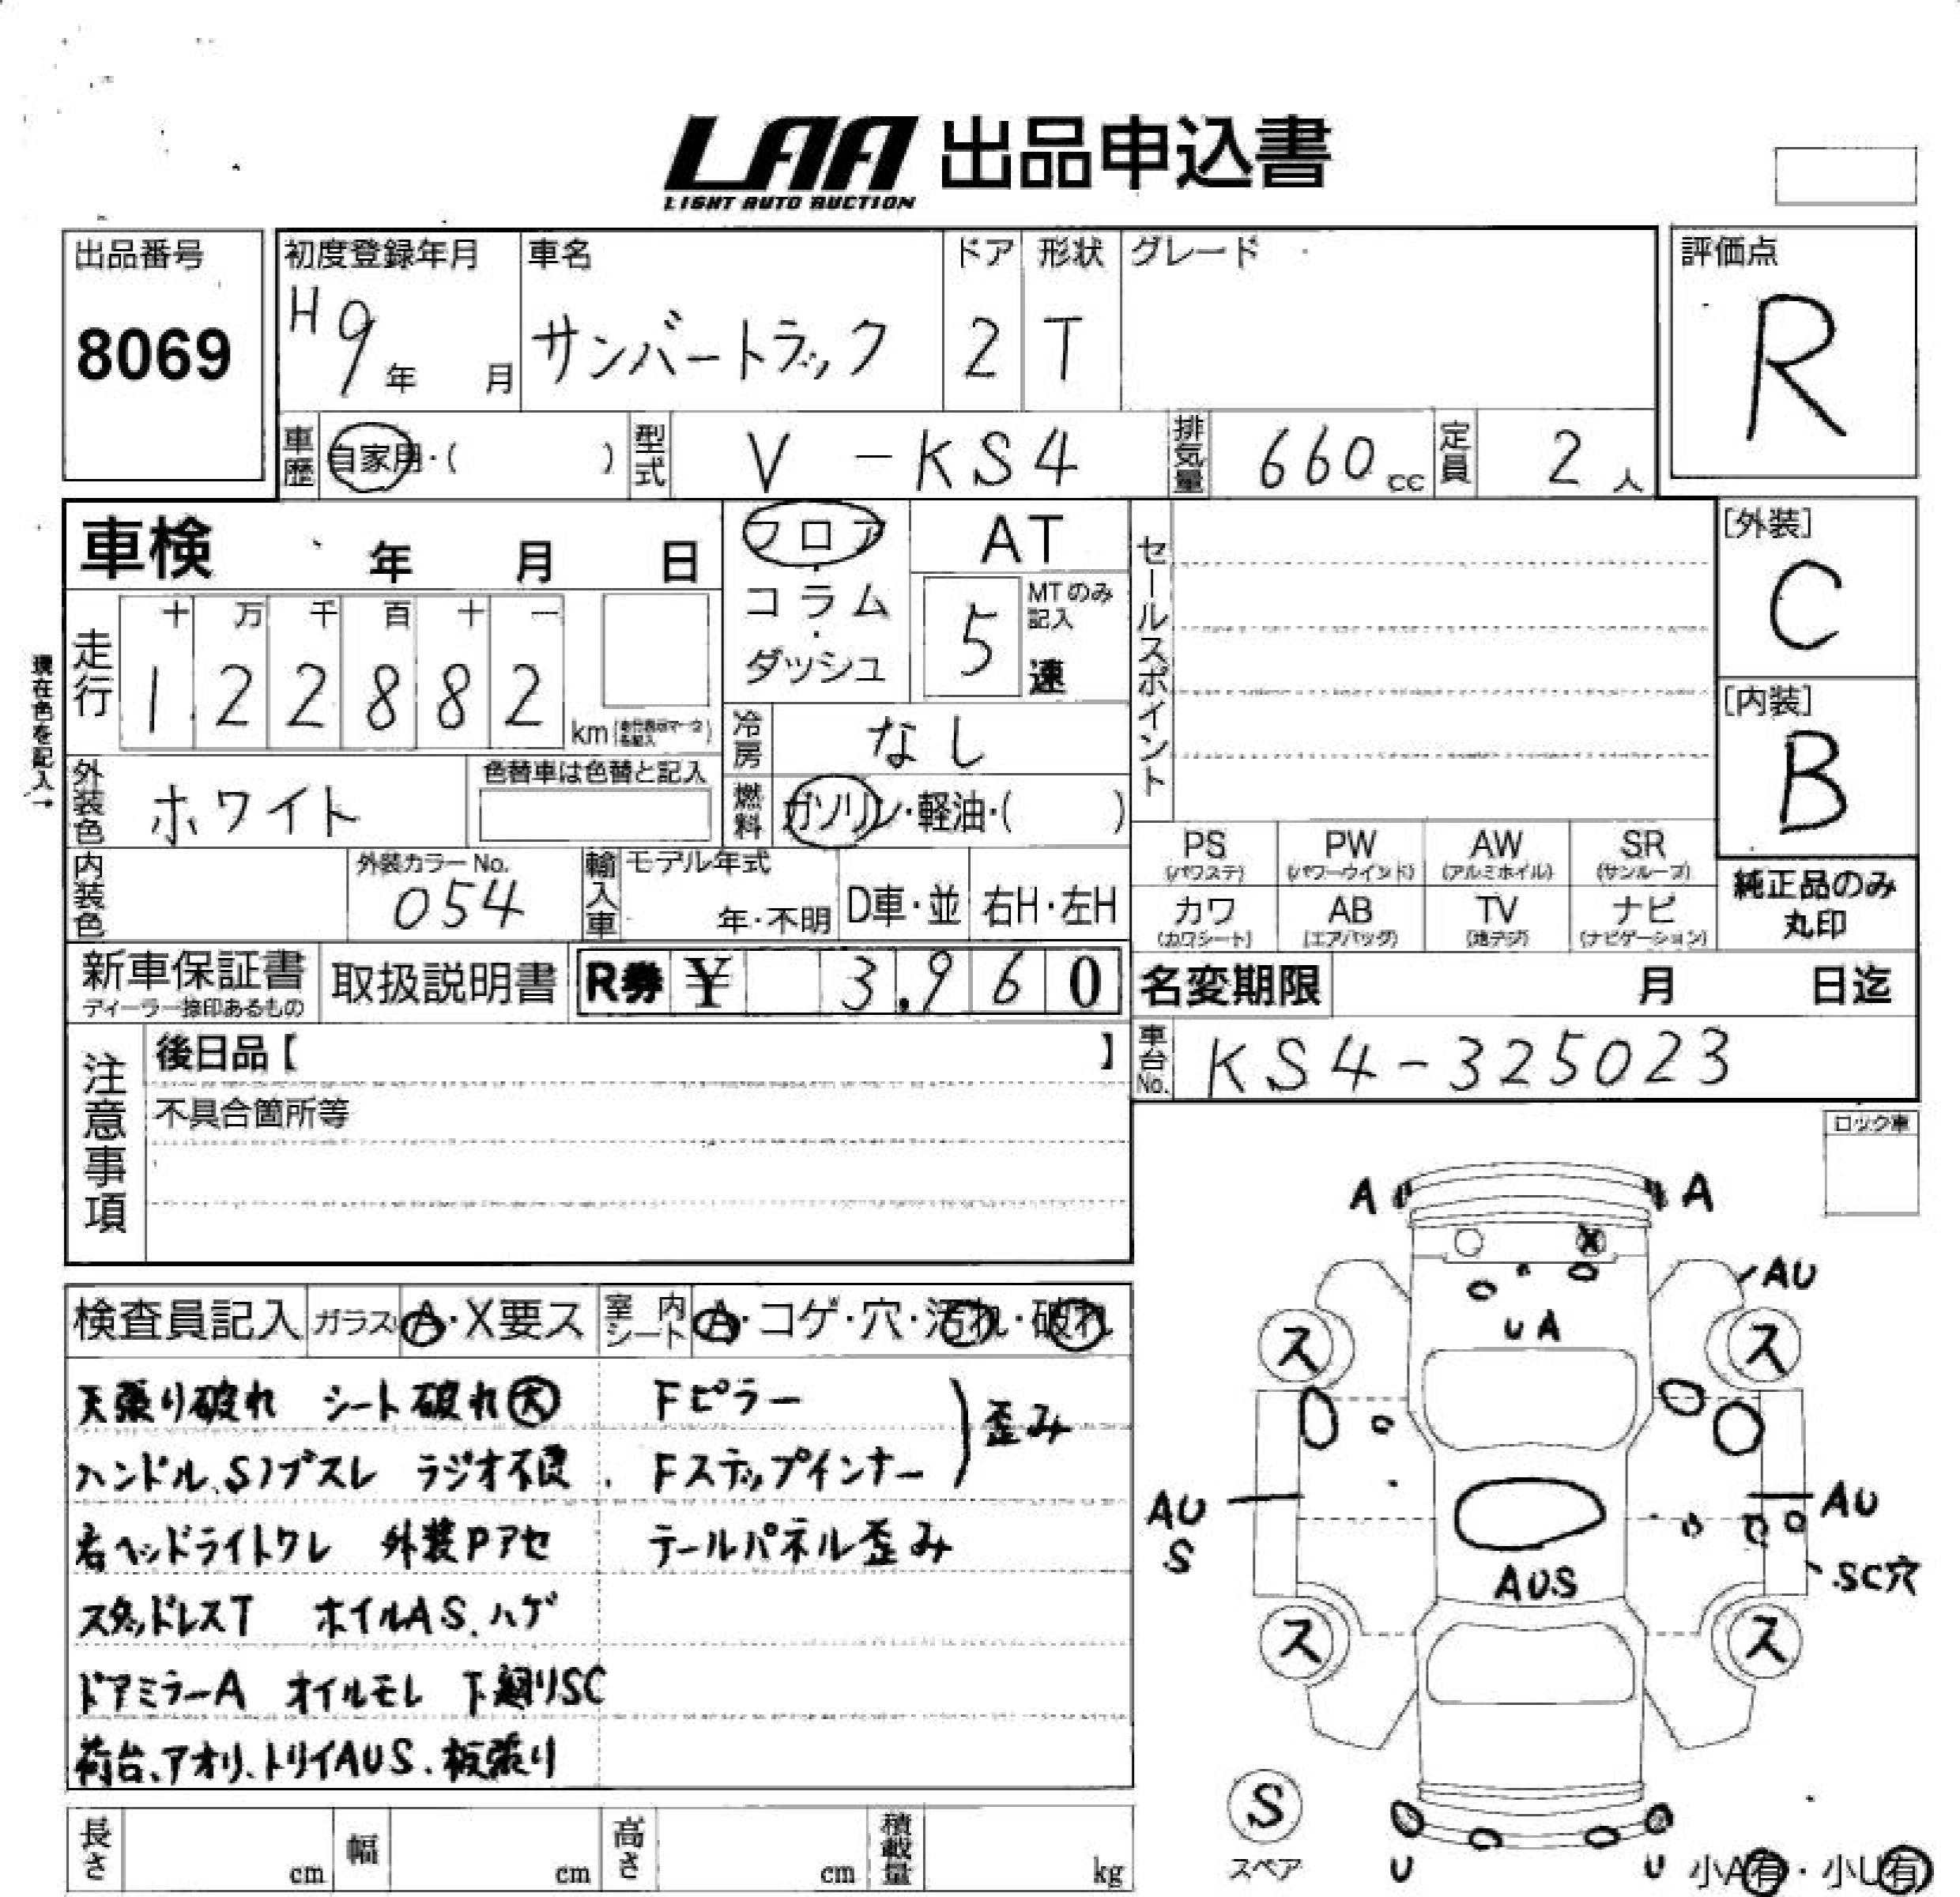 LAA 出品申込書
LIGHT AUTO AUCTION
出品番号
8069
初度登録年月
H9年 月
車名
サンバートラック
ドア
2
形状
T
グレード
評価点
R
車歴
自家用・( )
型式
V-KS4
排気量
660cc
定員
2人
車検 年 月 日
フロア・コラム・ダッシュ
AT
5
MTのみ記入
速
セールスポイント
[外装]
C
[内装]
B
現在色を記入→
走行
十 万 千 百 十 一
1 2 2 8 8 2
km
冷房
なし
外装色
ホワイト
色替車は色替と記入
燃料
ガソリン・軽油・( )
内装色
外装カラーNo.
054
輸入車
モデル年式
年・不明
D車・並
右H・左H
PS (パワステ)
PW (パワーウインド)
AW (アルミホイル)
SR (サンルーフ)
カワ (カワシート)
AB (エアバッグ)
TV (地デジ)
ナビ (ナビゲーション)
純正品のみ
丸印
新車保証書
ディーラー捺印あるもの
取扱説明書
R券 ¥ 3,960
名変期限 月 日迄
車台No.
KS4-325023
注意事項
後日品【 】
不具合箇所等
ロック車
検査員記入 ガラス A・X要ス 室内シート A・コゲ・穴・汚れ・破れ
天張り破れ シート破れ大 Fピラー
歪み
ハンドル、Sノブスレ ラジオ不良 Fステップインナー
右ヘッドライトワレ 外装Pアセ テールパネル歪み
スタッドレスT ホイルAS、ハゲ
ドアミラーA オイルモレ 下廻りSC
荷台、アオリ、トリイAUS、板張り
A A
AU
UA
ス ス
AU
S
AU
SC穴
AUS
ス ス
S
スペア
U U
小A有・小U有
長さ cm 幅 cm 高さ cm 積載量 kg